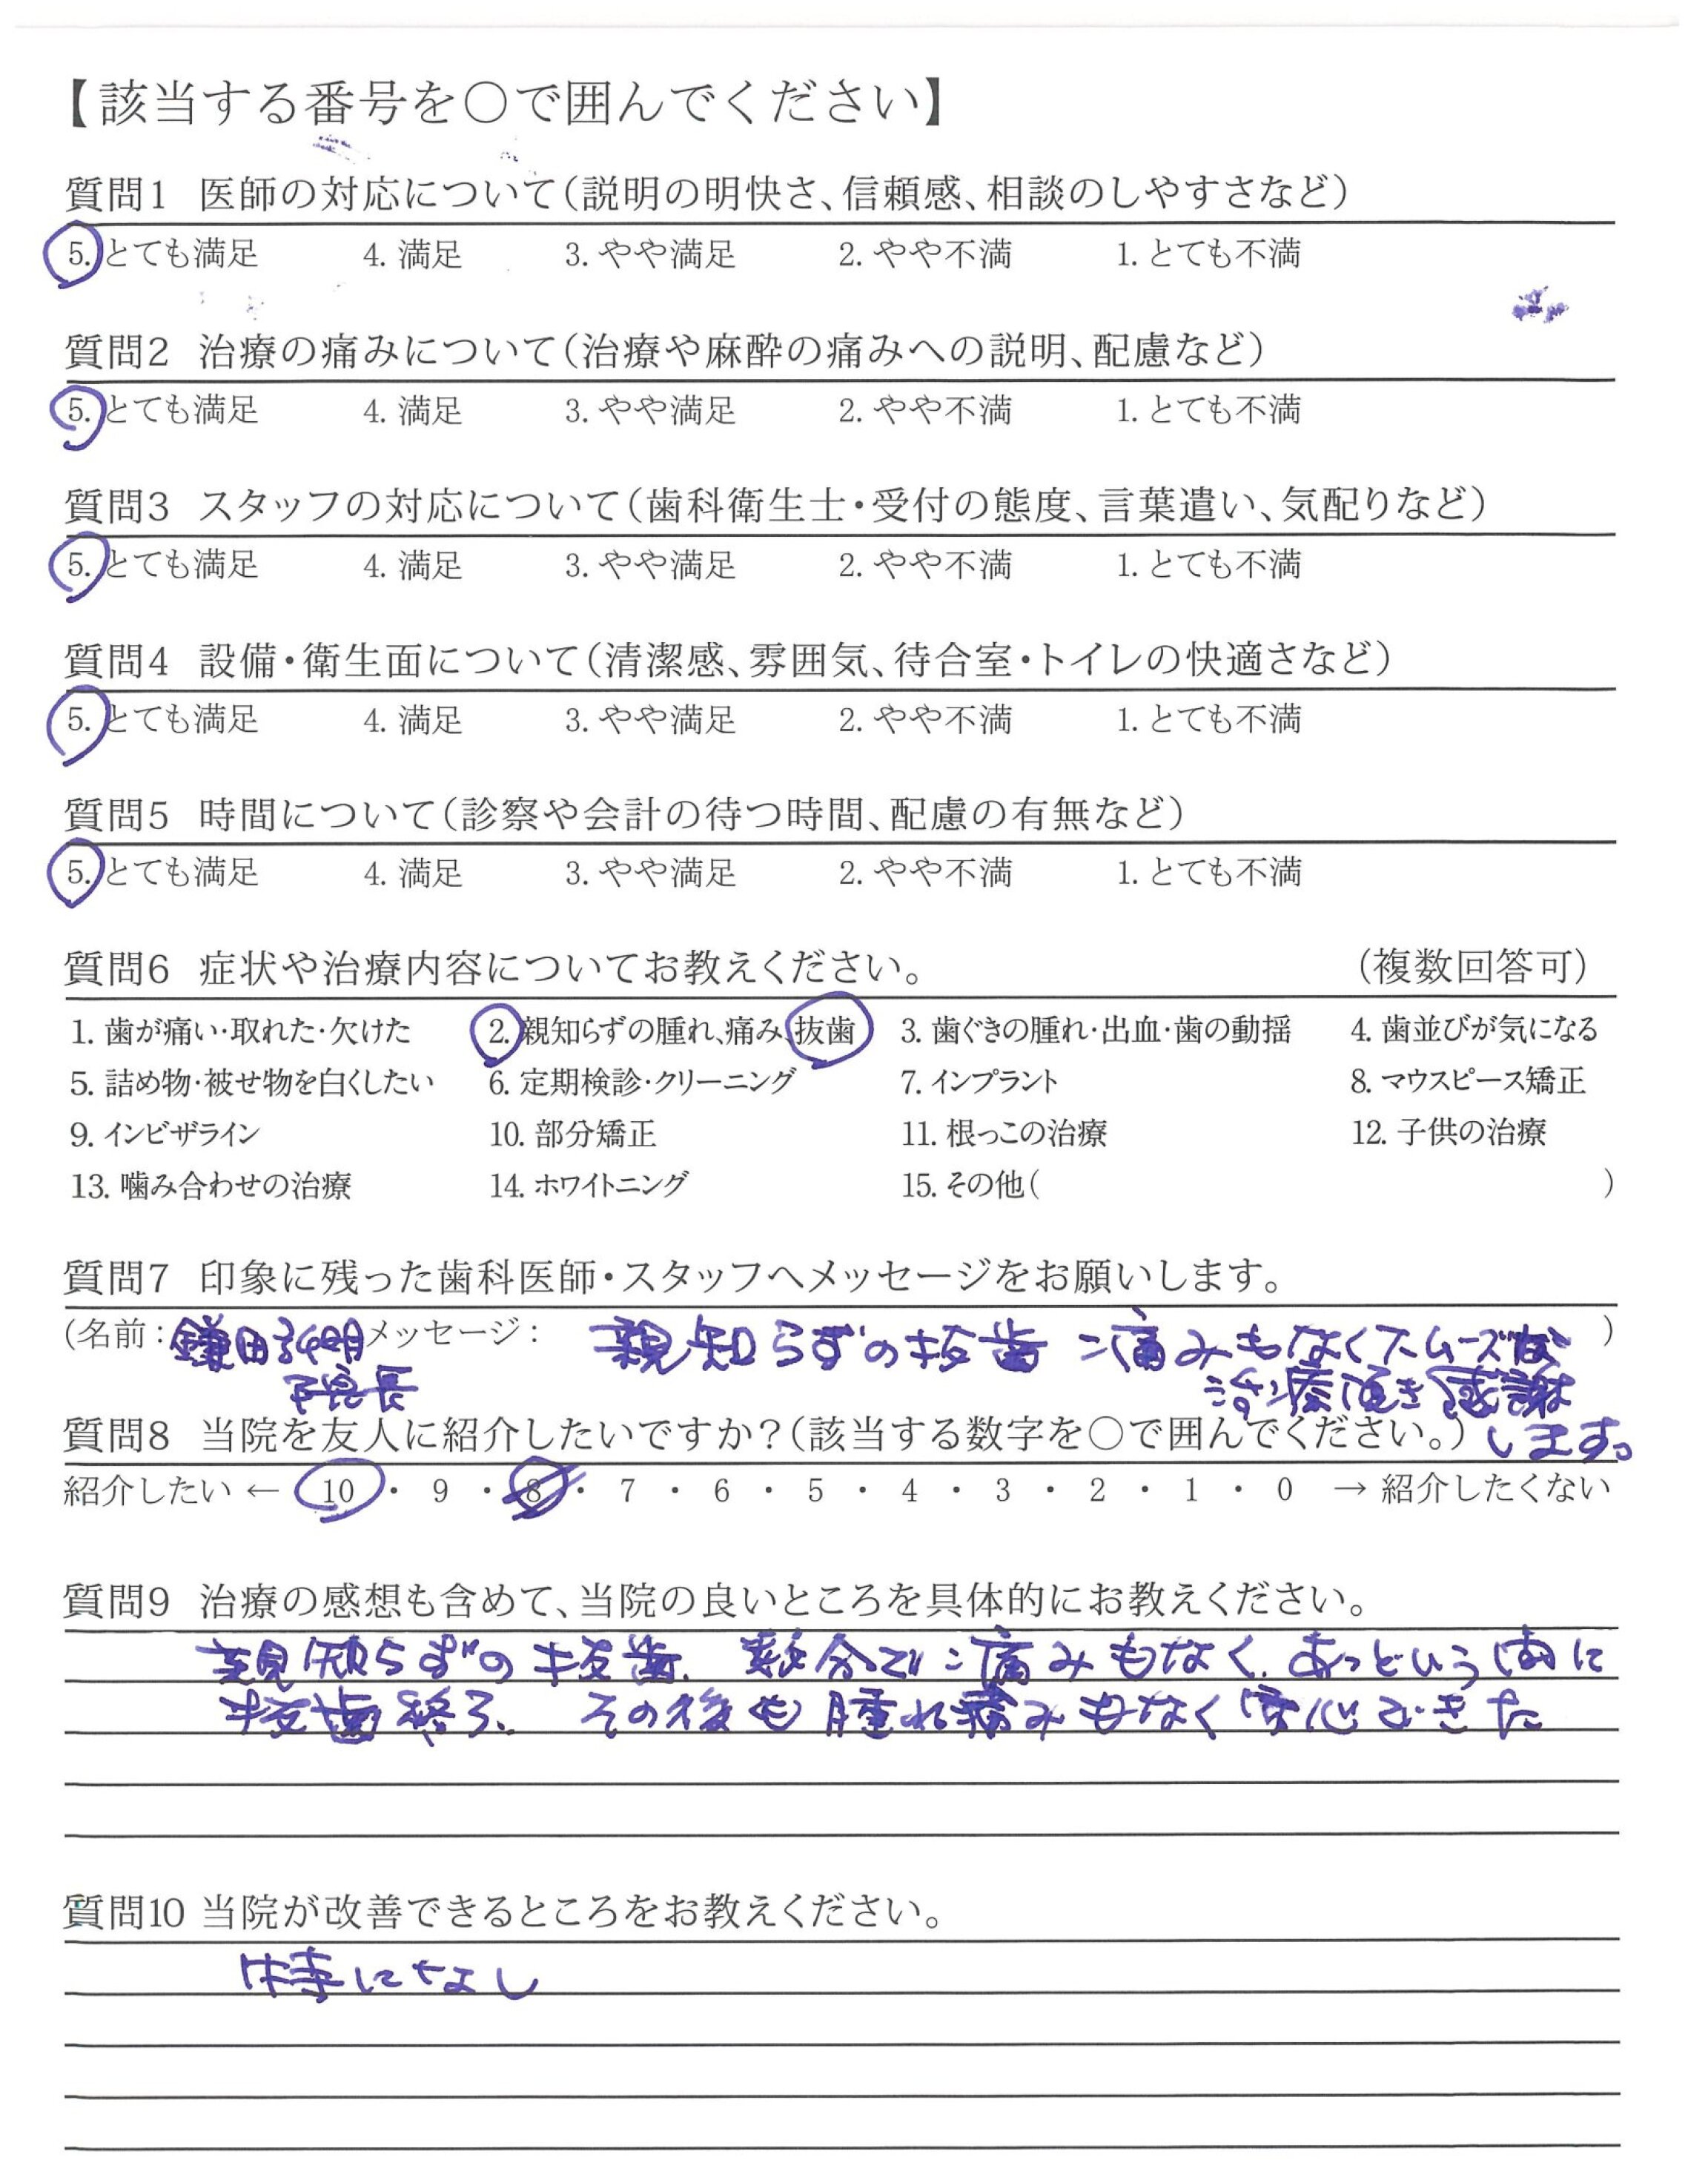 【該当する番号を○で囲んでください】
質問1 医師の対応について(説明の明快さ、信頼感、相談のしやすさなど)
5. とても満足 4. 満足 3. やや満足 2. やや不満 1. とても不満
質問2 治療の痛みについて(治療や麻酔の痛みへの説明、配慮など)
5. とても満足 4. 満足 3. やや満足 2. やや不満 1. とても不満
質問3 スタッフの対応について(歯科衛生士・受付の態度、言葉遣い、気配りなど)
5. とても満足 4. 満足 3. やや満足 2. やや不満 1. とても不満
質問4 設備・衛生面について(清潔感、雰囲気、待合室・トイレの快適さなど)
5. とても満足 4. 満足 3. やや満足 2. やや不満 1. とても不満
質問5 時間について(診察や会計の待つ時間、配慮の有無など)
5. とても満足 4. 満足 3. やや満足 2. やや不満 1. とても不満
質問6 症状や治療内容についてお教えください。 (複数回答可)
1. 歯が痛い・取れた・欠けた 2. 親知らずの腫れ、痛み、抜歯 3. 歯ぐきの腫れ・出血・歯の動揺 4. 歯並びが気になる
5. 詰め物・被せ物を白くしたい 6. 定期検診・クリーニング 7. インプラント 8. マウスピース矯正
9. インビザライン 10. 部分矯正 11. 根っこの治療 12. 子供の治療
13. 噛み合わせの治療 14. ホワイトニング 15. その他( )
質問7 印象に残った歯科医師・スタッフへメッセージをお願いします。
(名前: 鎌田 メッセージ: 親知らずの抜歯 痛みもなくスムーズな )
院長 治療頂き感謝
します。
質問8 当院を友人に紹介したいですか?(該当する数字を○で囲んでください。)
紹介したい ← 10 ・ 9 ・ 8 ・ 7 ・ 6 ・ 5 ・ 4 ・ 3 ・ 2 ・ 1 ・ 0 → 紹介したくない
質問9 治療の感想も含めて、当院の良いところを具体的にお教えください。
親知らずの抜歯、数分で痛みもなく、あっという間に
抜歯終了、その後も腫れ痛みもなく安心できた
質問10 当院が改善できるところをお教えください。
特になし